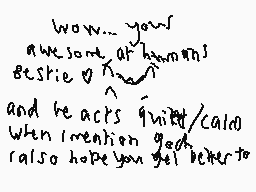 wow... your
awesome at humans
bestie ♡
and he acts quiet/calm
when i mention
(also hope you get better to